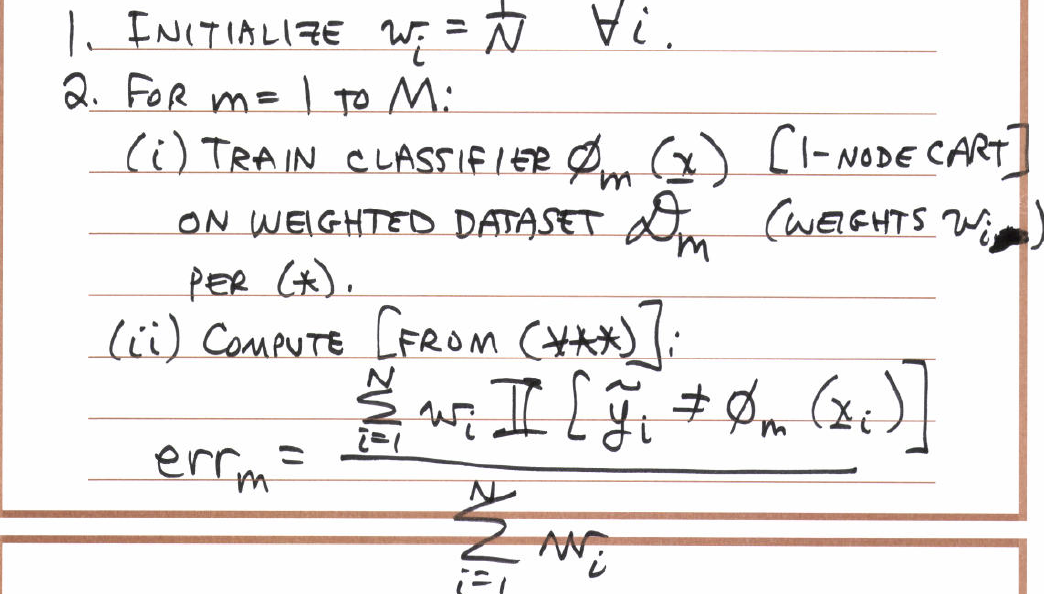 1. INITIALIZE w_i = 1/N ∀i.
2. FOR m = 1 TO M:
(i) TRAIN CLASSIFIER ø_m (x) [1-NODE CART]
ON WEIGHTED DATASET D_m (WEIGHTS w_i)
PER (*).
(ii) COMPUTE [FROM (***)]:
err_m = ∑_{i=1}^{N} w_i 𝕀 [ỹ_i ≠ ø_m (x_i)] / ∑_{i=1}^{N} w_i